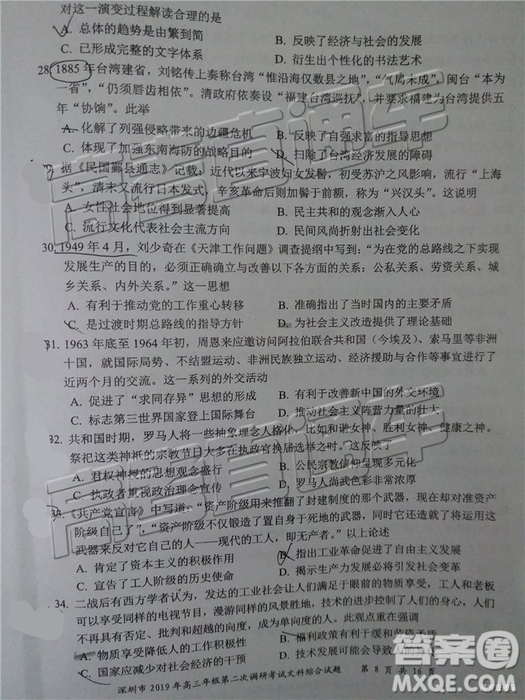 对这一演变过程解读合理的是
A. 总体的趋势是由繁到简 B. 反映了经济与社会的发展
C. 已形成完整的文字体系 D. 衍生出个性化的书法艺术
28. 1885年台湾建省，刘铭传上奏称台湾“惟沿海仅数县之地”，“气局未成”，闽台“本为
一省”，“仍须唇齿相依”。清政府依奏设“福建台湾巡抚”，并要求福建为台湾提供五
年“协饷”。此举
A. 化解了列强侵略带来的边疆危机 B. 反映了自强求富的指导思想
C. 体现了加强东南海防的战略目的 D. 扫除了台湾经济发展的障碍
据《民国鄞县通志》记载，近代以来宁波妇女发髻，初受苏沪之风影响，流行“上海
头”，清末又流行日本发式，辛亥革命后则加髻于前额，称为“兴汉头”。这说明
A. 女性社会地位得到显著提高 B. 民主共和的观念渐入人心
C. 流行文化代表社会主流方向 D. 民间风尚折射出社会变化
30. 1949年4月，刘少奇在《天津工作问题》调查提纲中写到：“为在党的总路线之下实现
发展生产的目的，必须正确确立与改善以下各方面的关系：公私关系、劳资关系、城
乡关系、内外关系。”这一思想
A. 有利于推动党的工作重心转移 B. 准确指出了当时国内的主要矛盾
C. 是过渡时期总路线的指导方针 D. 为社会主义改造提供了理论基础
31. 1963年底至1964年初，周恩来应邀访问阿拉伯联合共和国（今埃及）、索马里等非洲
十国，就国际局势、不结盟运动、非洲民族独立运动、经济援助与合作等事宜进行了
近两个月的交流。这一系列的外交活动
A. 促进了“求同存异”思想的形成 B. 有利于改善新中国的外交环境
C. 标志第三世界国家登上国际舞台 D. 有利于社会主义阵营力量的壮大
32. 共和国时期，罗马人将一些抽象理念人格化，比如和谐女神、胜利女神、健康之神。
祭祀这类神祇的宗教节日大多在执政官换届选举之时。这反映了
A. 君权神授的思想观念盛行 B. 公民宗教信仰呈现多元化
C. 执政者重视政治理念宣传 D. 罗马人尚武色彩非常浓厚
33. 《共产党宣言》中写道：“资产阶级用来推翻了封建制度的那个武器，现在却对准资产
阶级自己了”，“资产阶级不仅锻造了置自身于死地的武器，同时它还造就了将运用这
武器来反对它自己的人——现代的工人，即无产者。”以上论述
A. 肯定了资本主义的积极作用 B. 指出工业革命促进了自由主义发展
C. 宣告了工人阶级的历史使命 D. 生产力发展揭示必将引发社会变革
34. 二战后有西方学者认为，发达的工业社会让人们满足于眼前的物质享受，工人和老板
享受同样的电视节目，漫游同样的风景胜地，技术的进步控制了人们的身心，人们
不再具有否定、批判和超越的能力，成为单向度的人。此观点重在强调
A. 物质享受降低人的工作积极性 B. 福利政策有利于缓和社会矛盾
C. 国家应减少对社会经济的干预
深圳市2019年高三年级第二次调研考试文科综合试题 第8页 共16页